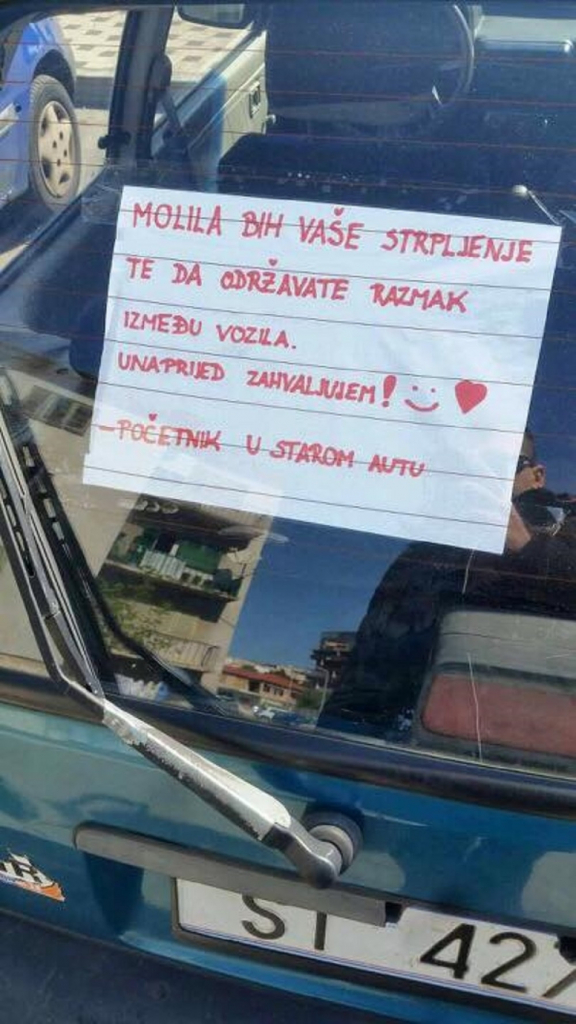 MOLILA BIH VAŠE STRPLJENJE
TE DA ODRŽAVATE RAZMAK
IZMEĐU VOZILA.
UNAPRIJED ZAHVALJUJEM! :) ♥
-POČETNIK U STAROM AUTU
ST 427